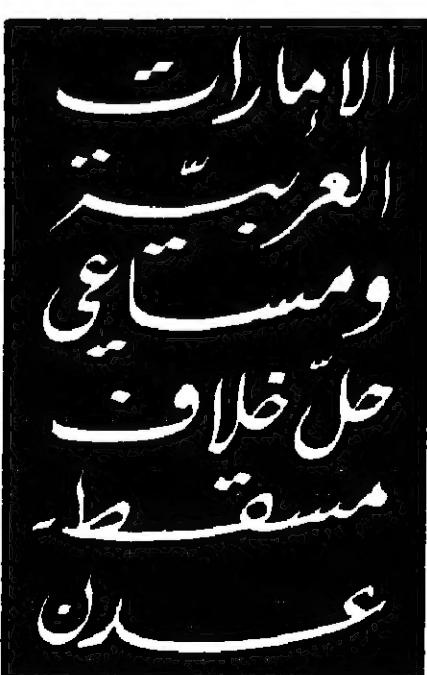 الإمارات
العربيّة
ومساعي
حلّ خلاف
مسقط -
عدن